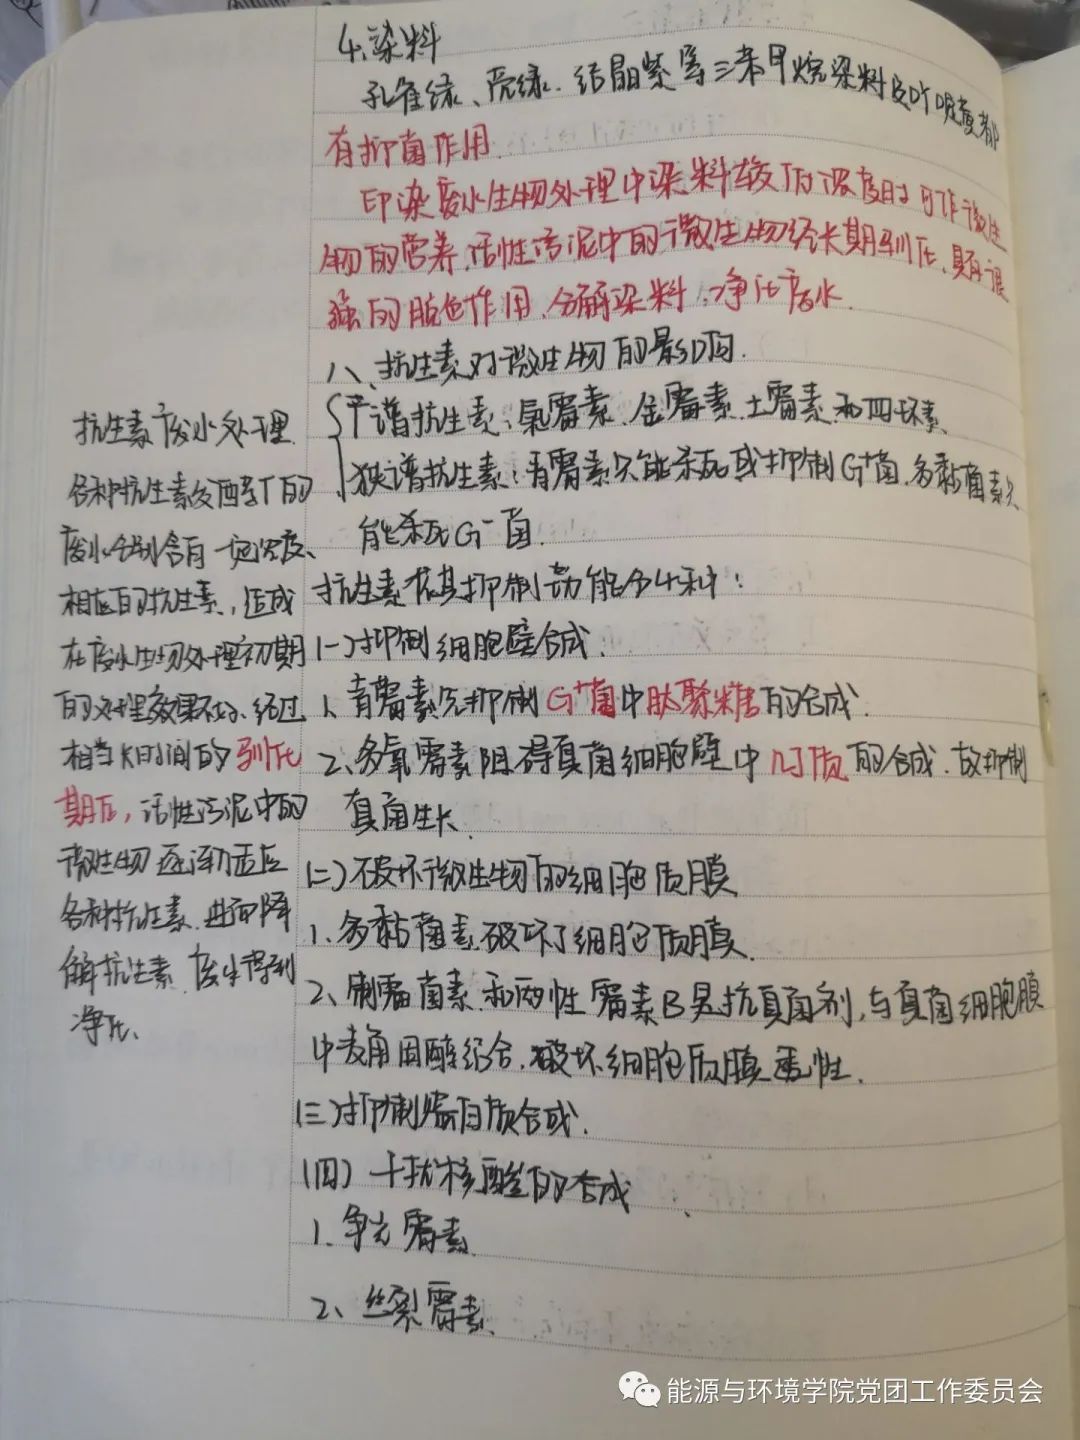 4.染料
孔雀绿、亮绿、结晶紫等三苯甲烷染料及吖啶黄都
有抑菌作用.
印染废水生物处理中染料较低浓度时可作微生
物的营养.活性污泥中的微生物经长期驯化、具有很
强的脱色作用、分解染料、净化废水.
八、抗生素对微生物的影响.
广谱抗生素:氯霉素、金霉素.土霉素和四环素.
狭谱抗生素:青霉素只能杀死或抑制G⁺菌.多黏菌素只
能杀死G⁻菌.
抗生素依其抑制功能分4种:
(一)抑制细胞壁合成.
1、青霉素先抑制G⁺菌中肽聚糖的合成.
2、多氧霉素阻碍真菌细胞壁中几丁质的合成.故抑制
真菌生长.
(二)破坏微生物的细胞质膜
1、多黏菌素破坏了细胞质膜.
2、制霉菌素和两性霉素B是抗真菌剂,与真菌细胞膜
中麦角固醇结合.破坏细胞质膜透性.
(三)抑制蛋白质合成.
(四)干扰核酸的合成
1、争光霉素
2、丝裂霉素.
抗生素废水处理.
各种抗生素发酵车间的
废水分别含有一定浓度、
相应的抗生素,造成
在废水生物处理初期
的处理效果不好.经过
相当长时间的驯化
期后,活性污泥中的
微生物逐渐适应
各种抗生素.进而降
解抗生素.废水得到
净化、
能源与环境学院党团工作委员会